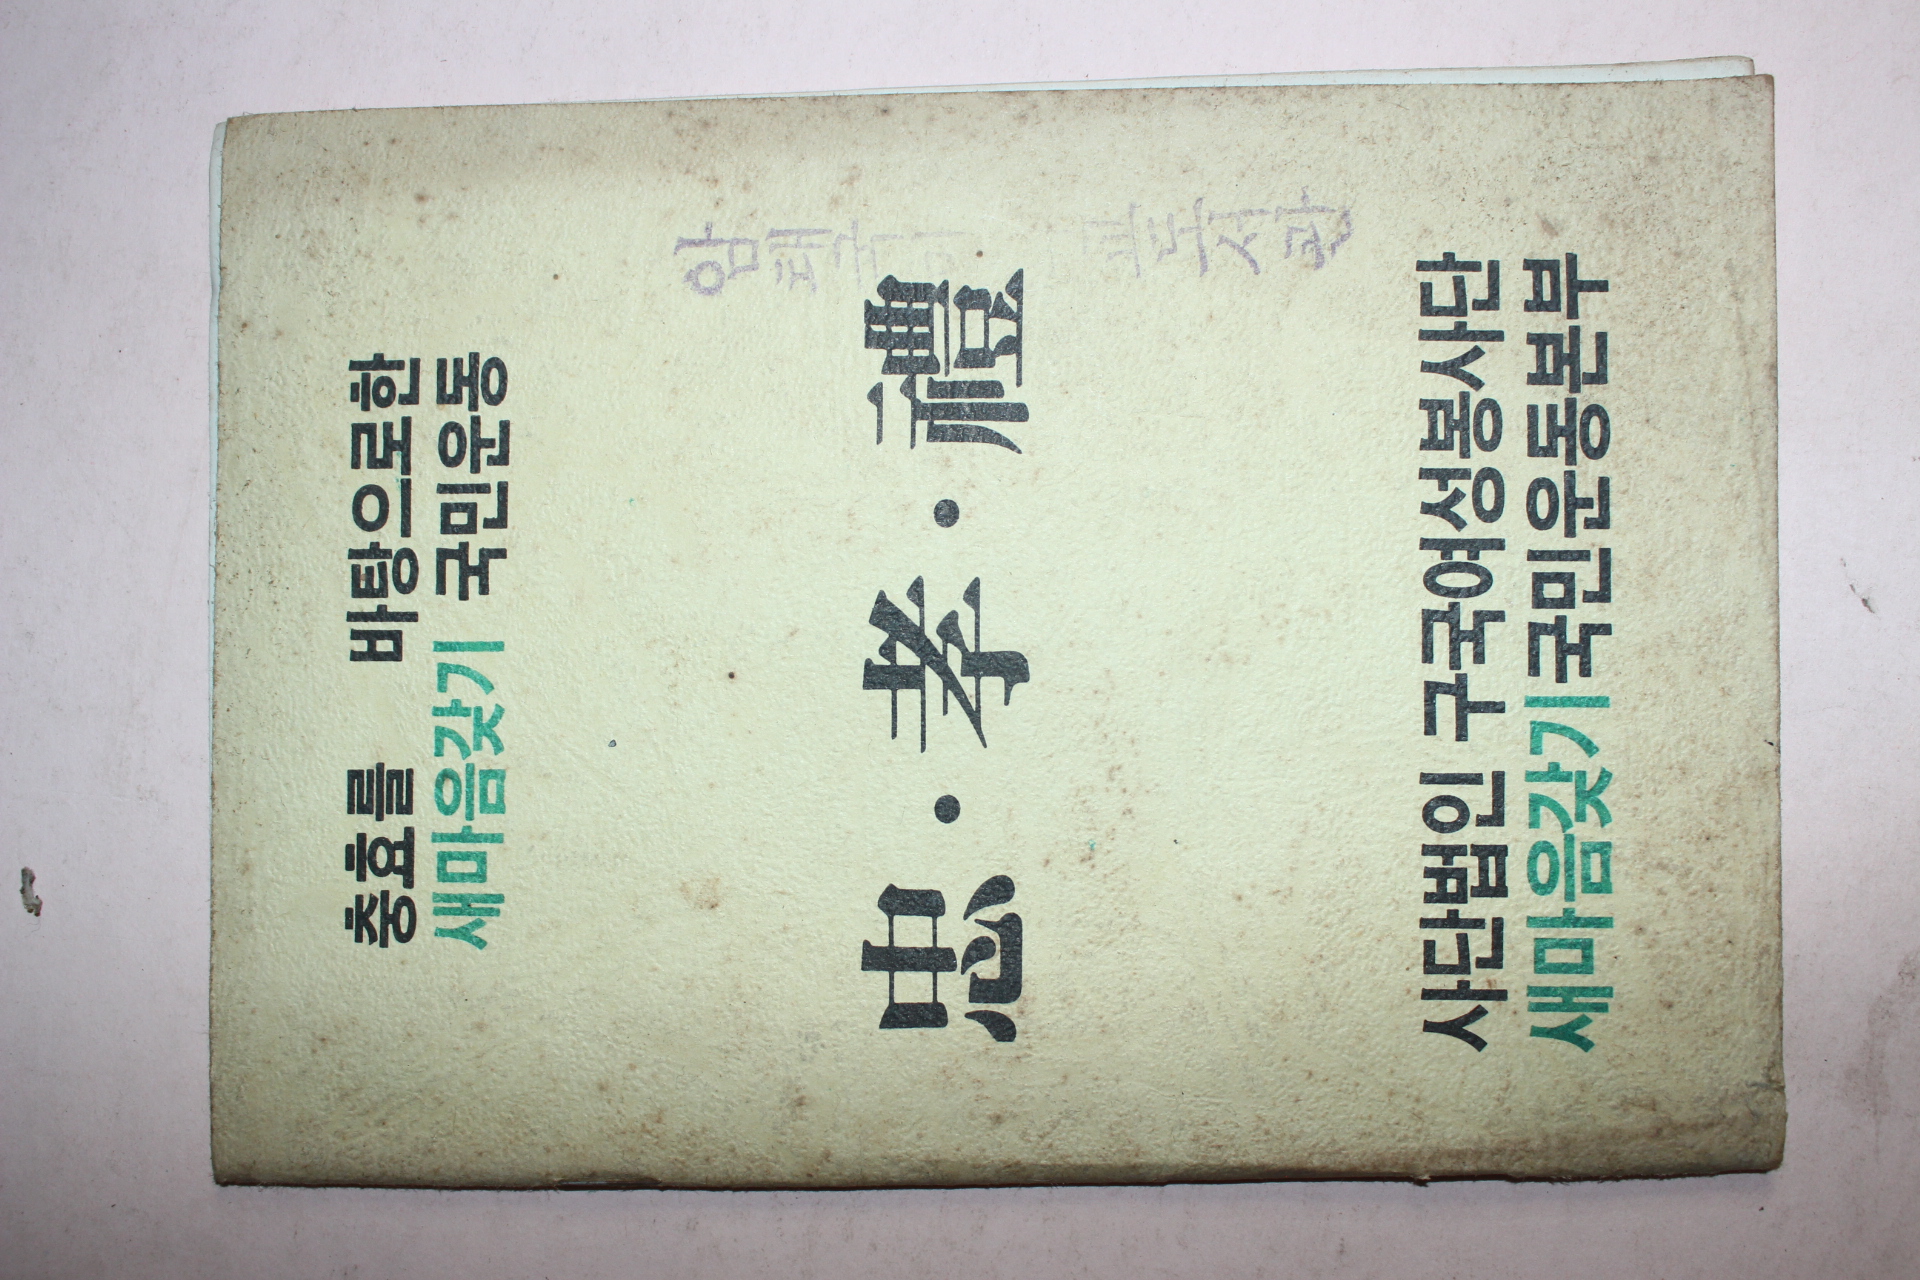 충효를 바탕으로한
새마음갖기 국민운동
忠·孝·禮
사단법인 구국여성봉사단
새마음갖기국민운동본부